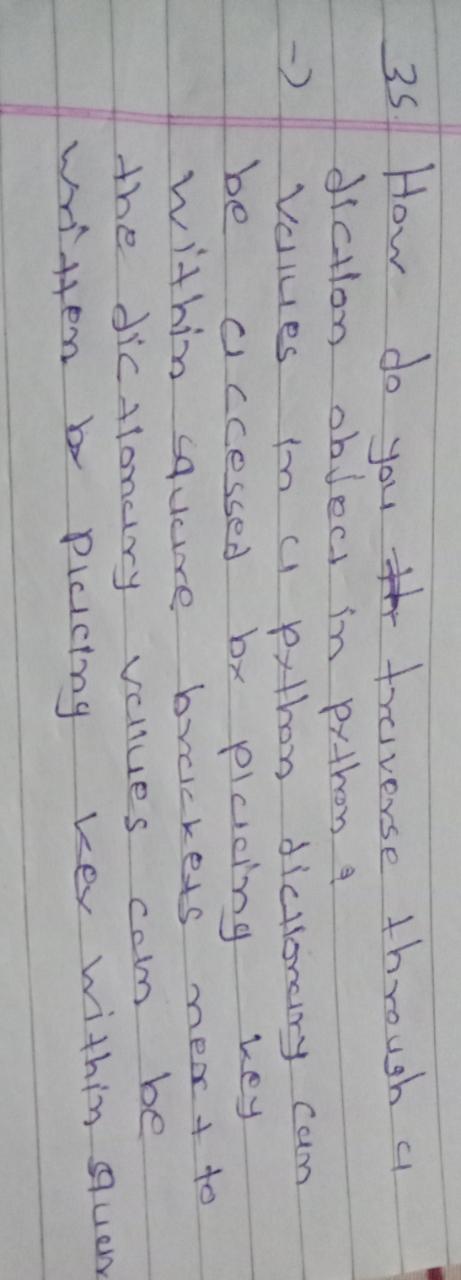 35. How do you traverse through a
diction object in python ?
-> Values in a python dictionary can
be accessed by placing key
within square brackets next to
the dictionary values can be
written by placing key within squar